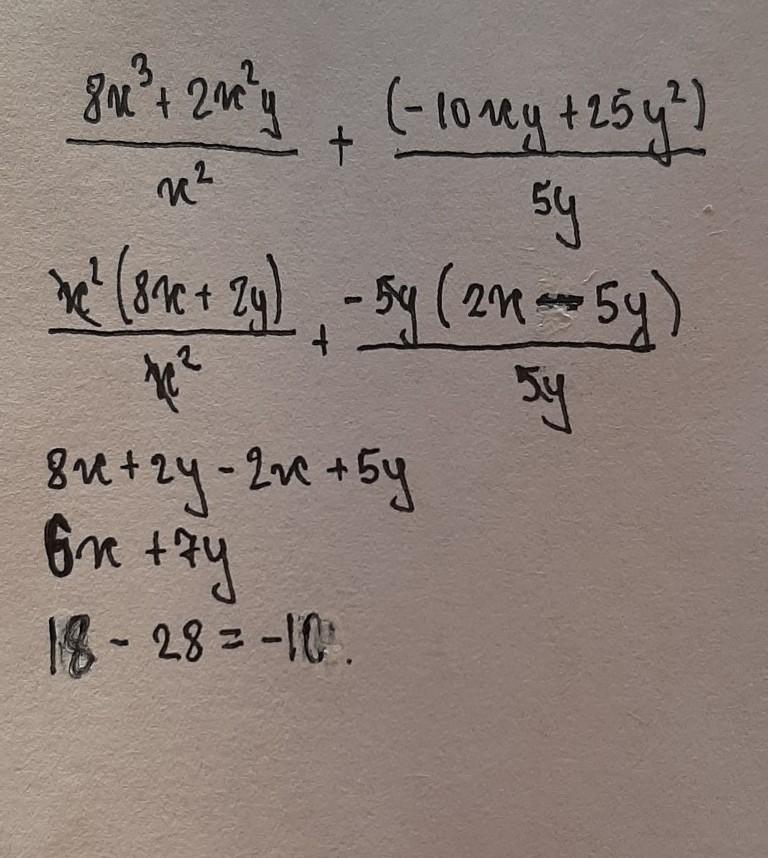 8x³ + 2x²y / x² + (-10xy + 25y²) / 5y
x²(8x + 2y) / x² + -5y(2x - 5y) / 5y
8x + 2y - 2x + 5y
6x + 7y
18 - 28 = -10.